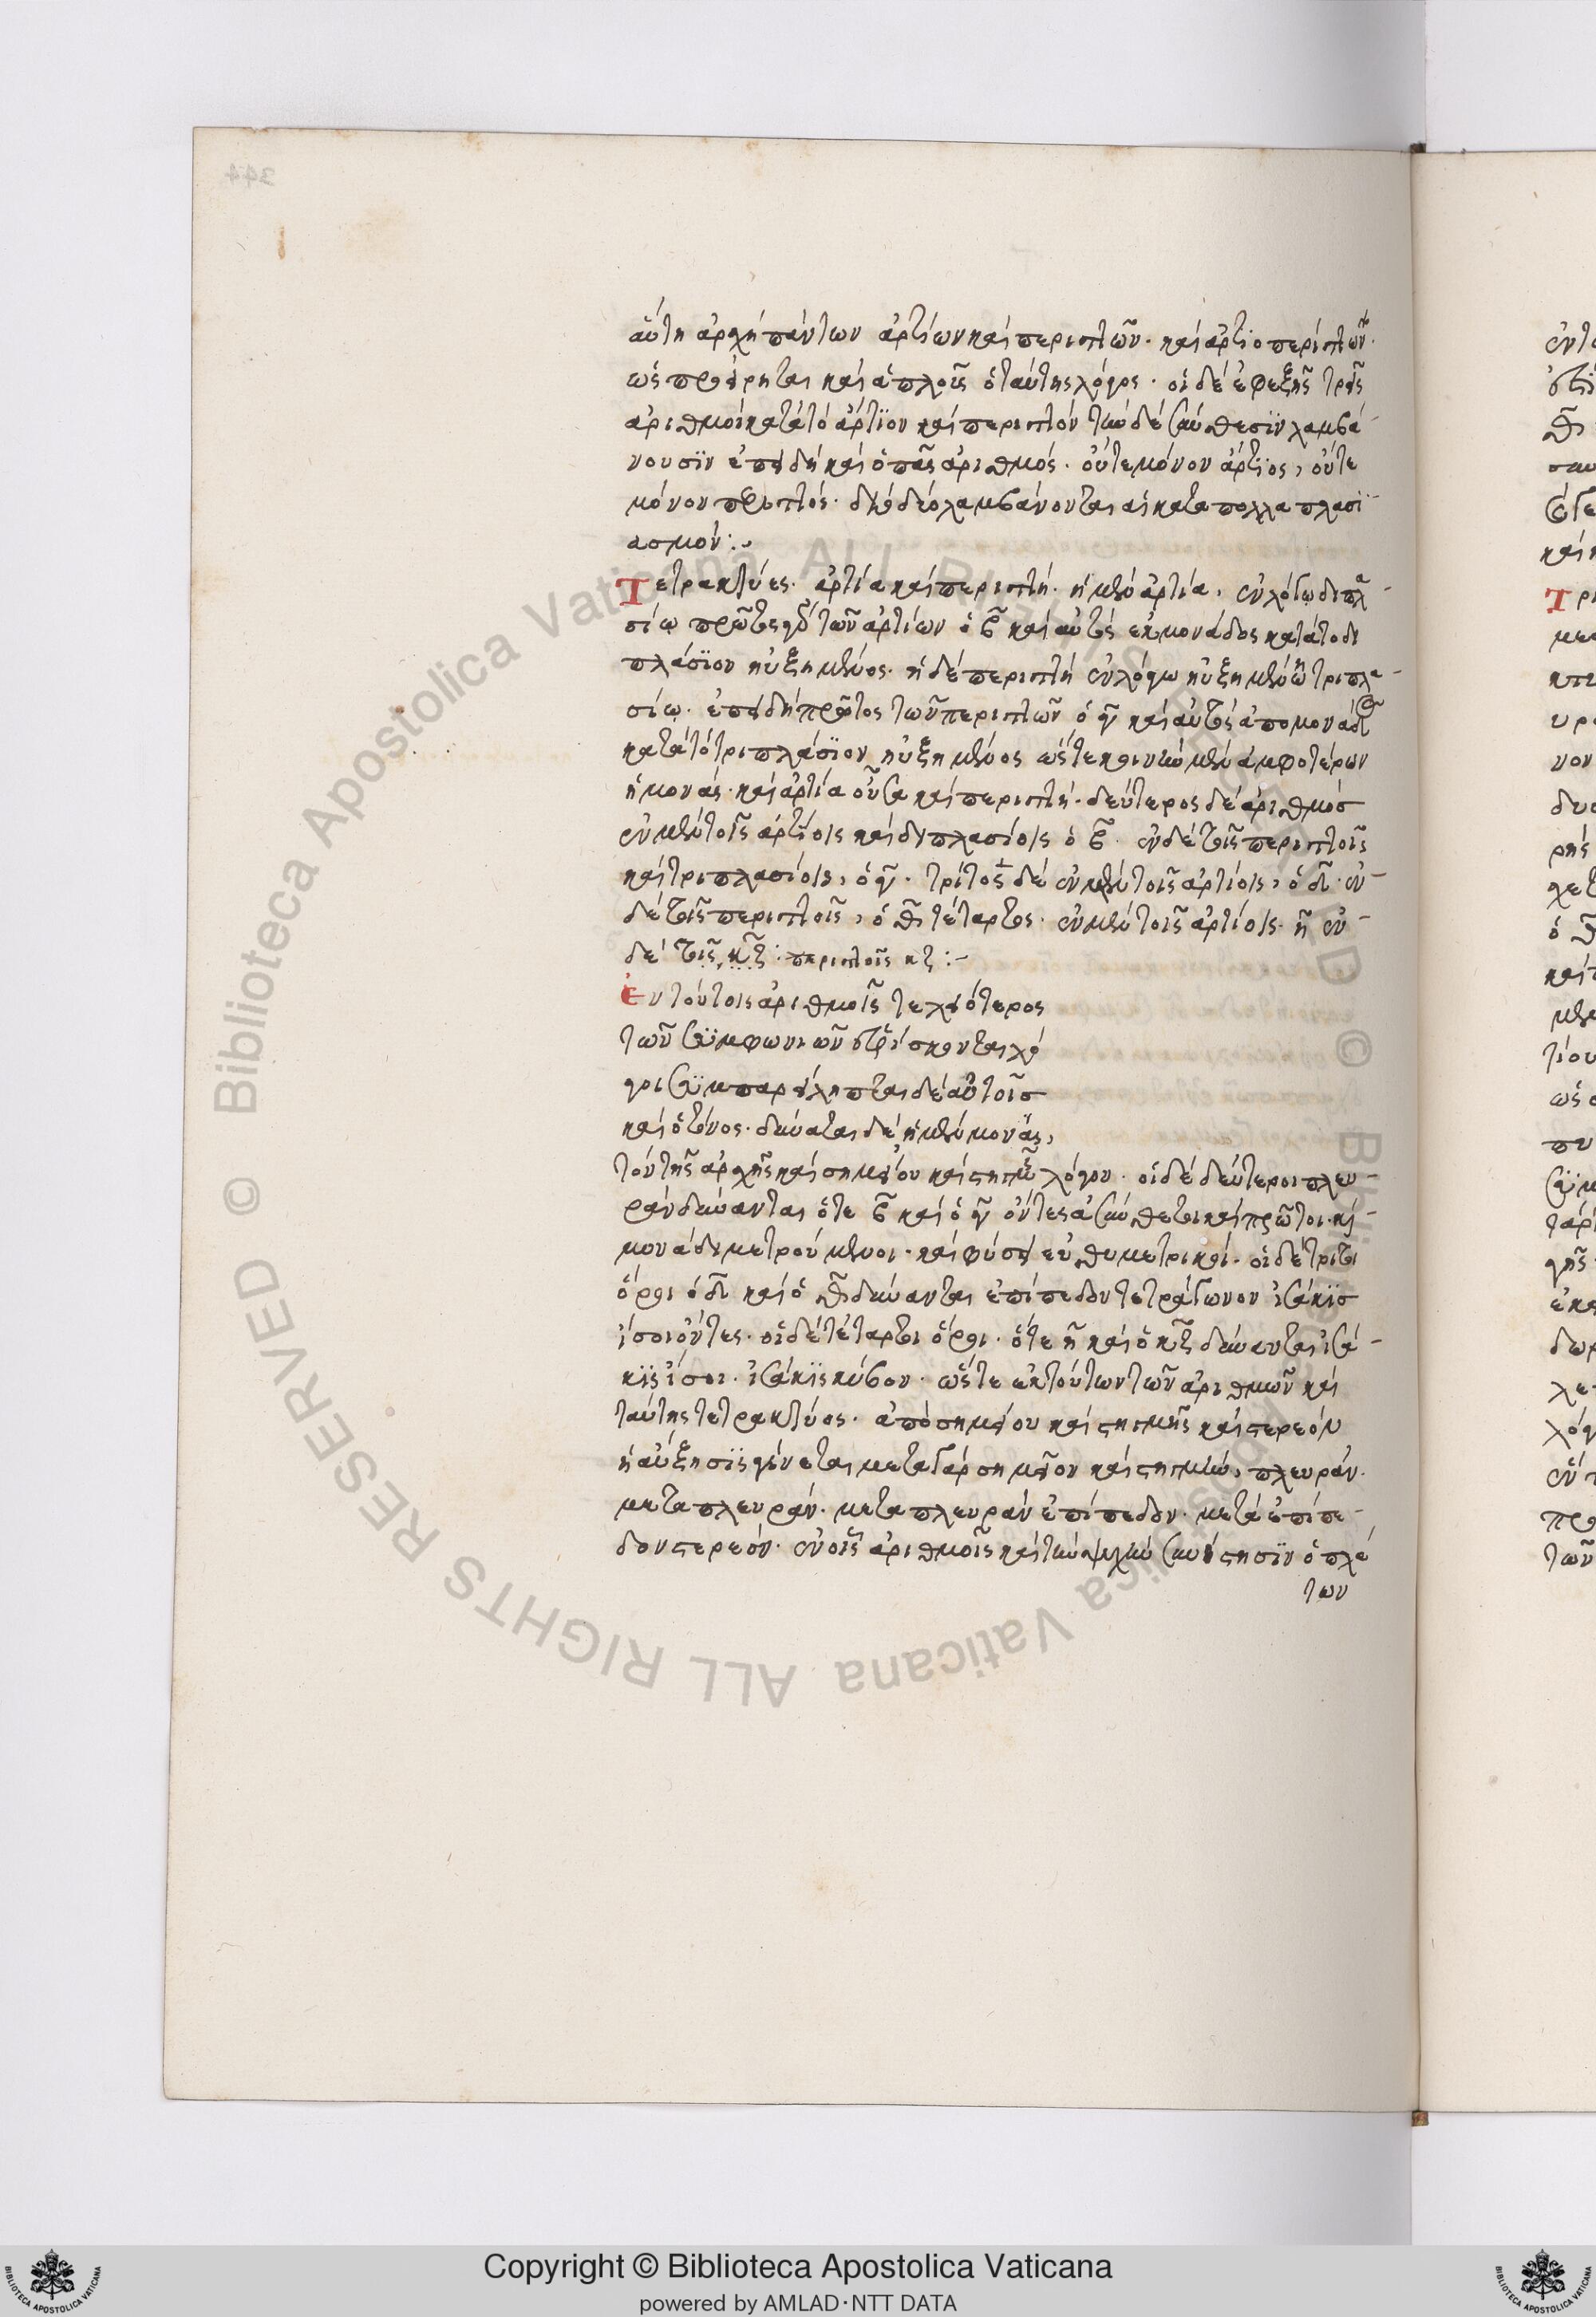 αὕτη ἀρχὴ πάντων ἀρτίων καὶ περιττῶν· καὶ ἀρτιοπερίττων·
ὡς προείρηται καὶ ἁπλοῦς ὁ ταύτης λόγος· οἱ δὲ ἐφεξῆς τρεῖς
ἀριθμοὶ κατὰ τὸ ἄρτϊον καὶ περιττὸν τὴν δὲ σύνθεσϊν λαμβά-
νουσϊν ἐπειδὴ καὶ ὁ πᾶς ἀριθμός· οὔτε μόνον ἄρτϊος, οὔτε
μόνον περιττός· διὸ δύο λαμβάνονται αἱ κατὰ πολλαπλασϊ-
ασμὸν:
Τετρακτύες· ἀρτία καὶ περιττή· ἡ μὲν ἀρτία, ἐν λόγω διπλα
σίω πρῶτος γὰρ τῶν ἀρτίων ὁ β καὶ αὐτὸς ἐκ μονάδος κατὰ τὸ δι
πλάσϊον ηὐξημένος· ἡ δὲ περιττὴ ἐν λόγω ηὐξημένη τριπλα-
σίω· ἐπειδὴ πρῶτος τῶν περιττῶν ὁ γ καὶ αὐτὸς ἀπὸ μονάδος
κατὰ τὸ τριπλάσϊον ηὐξημένος ὥστε κοινὴ μὲν ἀμφοτέρων
ἡ μονάς· καὶ ἀρτία οὖσα καὶ περιττή· δεύτερος δὲ ἀριθμὸσ
ἐν μὲν τοῖς ἀρτίοις καὶ διπλασίοις ὁ β· ἐν δὲ τοῖς περιττοῖς
καὶ τριπλασίοις, ὁ γ· τρίτος δὲ ἐν μὲν τοῖς ἀρτίοις, ὁ δ· ἐν-
δὲ τοῖς περιττοῖς, ὁ θ τέταρτος· ἐν μὲν τοῖς ἀρτίοις· η ἐν-
δὲ τοῖς κζ: περιττοῖς κζ:-
Ἐν τούτοις ἀριθμοῖς τελειότερος
τῶν συμφωνιῶν εὑρίσκονται λό
γοι συμπαρείληπται δὲ αὐτοῖσ
καὶ ὁ τόνος· δύναται δὲ ἡ μὲν μονάς,
τὸν τῆς ἀρχῆς καὶ σημείου καὶ στιγμῆς λόγον· οἱ δὲ δεύτεροι πλευ-
ρὰν δύνανται ὅτε β καὶ ὁ γ ὄντες ἀσύνθετοι καὶ πρῶτοι· καὶ
μονάδι μετρούμενοι· καὶ φύσει εὐθυμετρικοί· οἱ δὲ τρίτοι
ὅροι ὁ δ καὶ ὁ θ δύνανται ἐπίπεδον τετράγωνον ἰσάκϊσ
ἴσοι ὄντες· οἱ δὲ τέταρτοι ὅροι· ὅτε η καὶ ὁ κζ δύνανται ἰσά-
κϊς ἴσοι· ἰσάκϊς κύβον· ὥστε ἐκ τούτων τῶν ἀριθμῶν καὶ
ταύτης τετρακτύος· ἀπὸ σημείου καὶ στιγμῆς καὶ στερεὸν
ἡ αὔξησϊς γίνεται μετὰ γὰρ σημεῖον καὶ στιγμὴν, πλευράν·
μετὰ πλευράν· μετὰ πλευρὰν ἐπίπεδον· μετὰ ἐπίπε-
δον στερεόν· ἐν οἷς ἀριθμοῖς καὶ τὴν ψυχὴν συνίστησϊν ὁ πλά
των